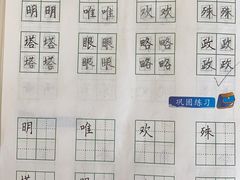 明 明 唯 唯 欢 欢 殊 殊
塔 塔 眼 眼 略 略 政 政
塔 塔 眼 眼 略 略 政 政
巩固练习
明 唯 欢 殊